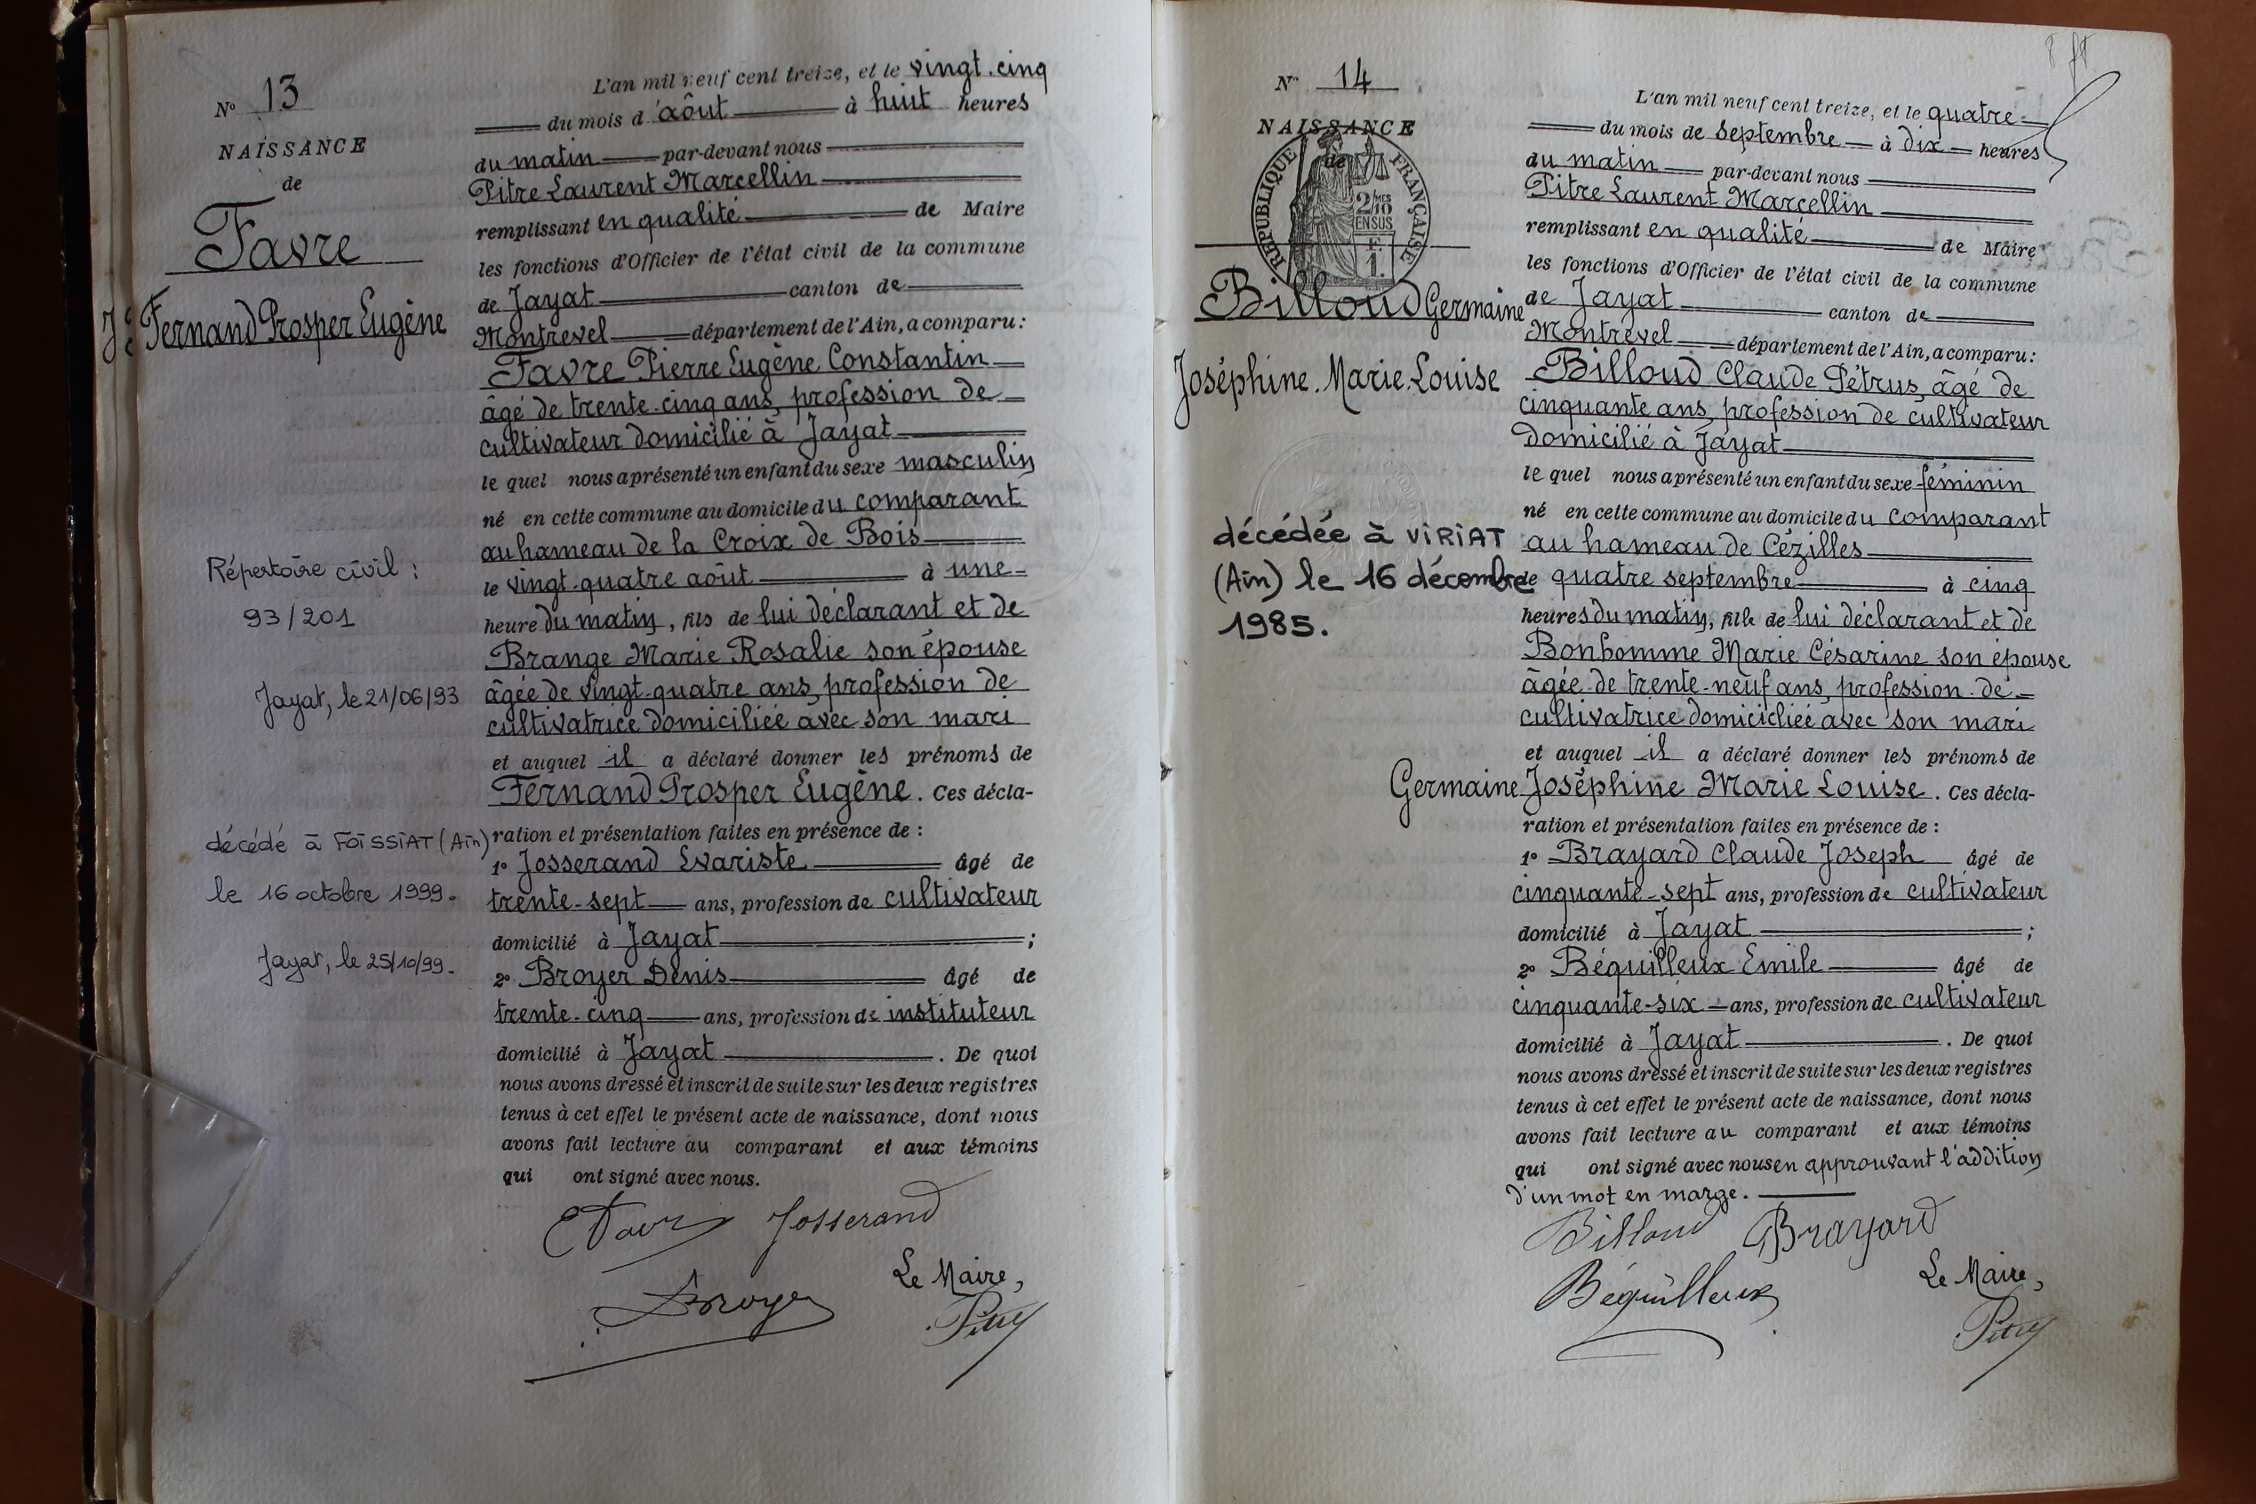 N° 13
NAISSANCE
de
Favre
Fernand Prosper Eugène
Répertoire civil :
93/201
Jayat, le 21/06/93
décédé à FOISSIAT (Ain)
le 16 octobre 1999.
Jayat, le 25/10/99.
L'an mil neuf cent treize, et le vingt-cinq
du mois d'août à huit heures
du matin par-devant nous
Pitre Laurent Marcellin
remplissant en qualité de Maire
les fonctions d'Officier de l'état civil de la commune
de Jayat canton de
Montrevel département de l'Ain, a comparu :
Favre Pierre Eugène Constantin
âgé de trente-cinq ans, profession de
cultivateur domicilié à Jayat
le quel nous a présenté un enfant du sexe masculin
né en cette commune au domicile du comparant
au hameau de la Croix de Bois
le vingt-quatre août à une
heure du matin, fils de lui déclarant et de
Brange Marie Rosalie son épouse
âgée de vingt-quatre ans, profession de
cultivatrice domiciliée avec son mari
et auquel il a déclaré donner les prénoms de
Fernand Prosper Eugène. Ces décla-
ration et présentation faites en présence de :
1° Josserand Evariste âgé de
trente-sept ans, profession de cultivateur
domicilié à Jayat ;
2° Broyer Denis âgé de
trente-cinq ans, profession de instituteur
domicilié à Jayat . De quoi
nous avons dressé et inscrit de suite sur les deux registres
tenus à cet effet le présent acte de naissance, dont nous
avons fait lecture au comparant et aux témoins
qui ont signé avec nous.
Josserand
Le Maire,
Broyer
Pitre
N° 14
NAISSANCE
de
RÉPUBLIQUE FRANÇAISE
2/10 MES
EN SUS
F.
1.
Billoud Germaine
Joséphine Marie Louise
décédée à VIRIAT
(Ain) le 16 décembre
1985.
L'an mil neuf cent treize, et le quatre
du mois de septembre à dix heures
du matin par-devant nous
Pitre Laurent Marcellin
remplissant en qualité de Maire
les fonctions d'Officier de l'état civil de la commune
de Jayat canton de
Montrevel département de l'Ain, a comparu :
Billoud Claude Pétrus, âgé de
cinquante ans, profession de cultivateur
domicilié à Jayat
le quel nous a présenté un enfant du sexe féminin
né en cette commune au domicile du comparant
au hameau de Cézilles
le quatre septembre à cinq
heures du matin, fille de lui déclarant et de
Bonhomme Marie Césarine son épouse
âgée de trente-neuf ans, profession de
cultivatrice domicicliée avec son mari
et auquel il a déclaré donner les prénoms de
Germaine Joséphine Marie Louise. Ces décla-
ration et présentation faites en présence de :
1° Brayard Claude Joseph âgé de
cinquante-sept ans, profession de cultivateur
domicilié à Jayat ;
2° Béquilleux Emile âgé de
cinquante-six ans, profession de cultivateur
domicilié à Jayat . De quoi
nous avons dressé et inscrit de suite sur les deux registres
tenus à cet effet le présent acte de naissance, dont nous
avons fait lecture au comparant et aux témoins
qui ont signé avec nous en approuvant l'addition
d'un mot en marge.
Billoud Brayard
Béquilleux
Le Maire,
Pitre